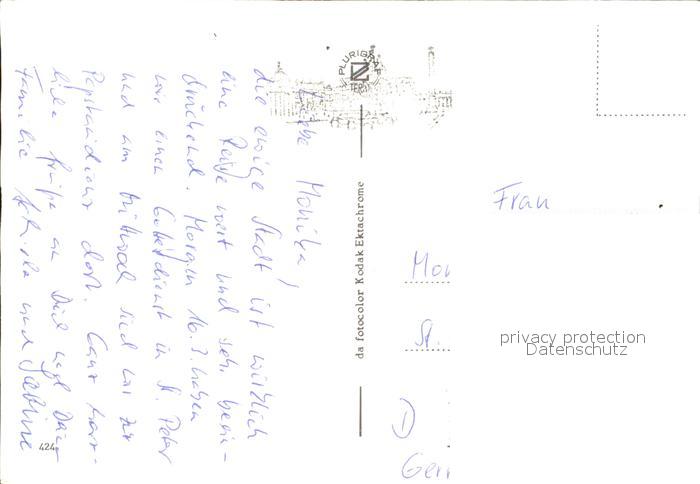 Liebe Monika!
die ewige Stadt ist wirklich
eine Reise wert und sehr beein-
druckend. Morgen 16.3. haben
wir einen Gottesdienst in St. Peter
und am Mittwoch sind wir zur
Papstaudienz dort. Ganz herz-
liche Grüße an Dich und Deine
Familie und Sabine
424
PLURIGRAF
TERNI
da fotocolor Kodak Ektachrome
Frau
Mon
St.
D
Gerr
privacy protection
Datenschutz